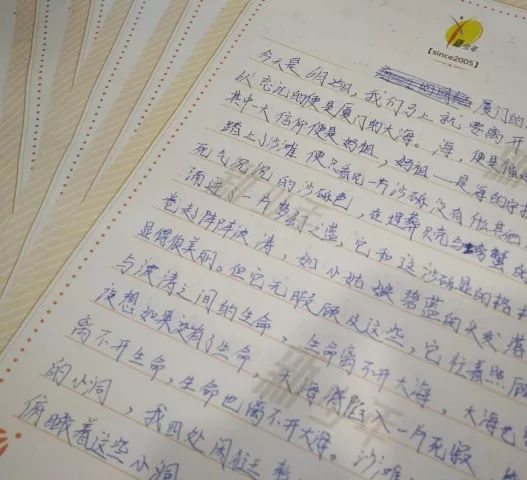 新少年
[since2005]
厦门的
今天是6月2日,我们马上就要离开
忘的便是厦门的大海。海,便是福建
其中一大信仰便是妈祖,妈祖——是海的守护
踏上了沙滩 便只看见一片沙砾没有什么其他
死气沉沉的沙砾色,在埋葬贝壳与螃蟹
涌进了一片梦幻之蓝,它和这沙砾显的格
卷起阵阵波涛,如小姑娘碧蓝的头发
显得很美丽。但它无暇顾及这些,它任
与波涛之间的生命,生命离不开大海,大海也
夜想如果没有了生命,大海将陷入一片死寂
离不开生命,生命也离不开大海。沙滩
的小洞,我四处闲
俯瞰着这些小洞
新少年